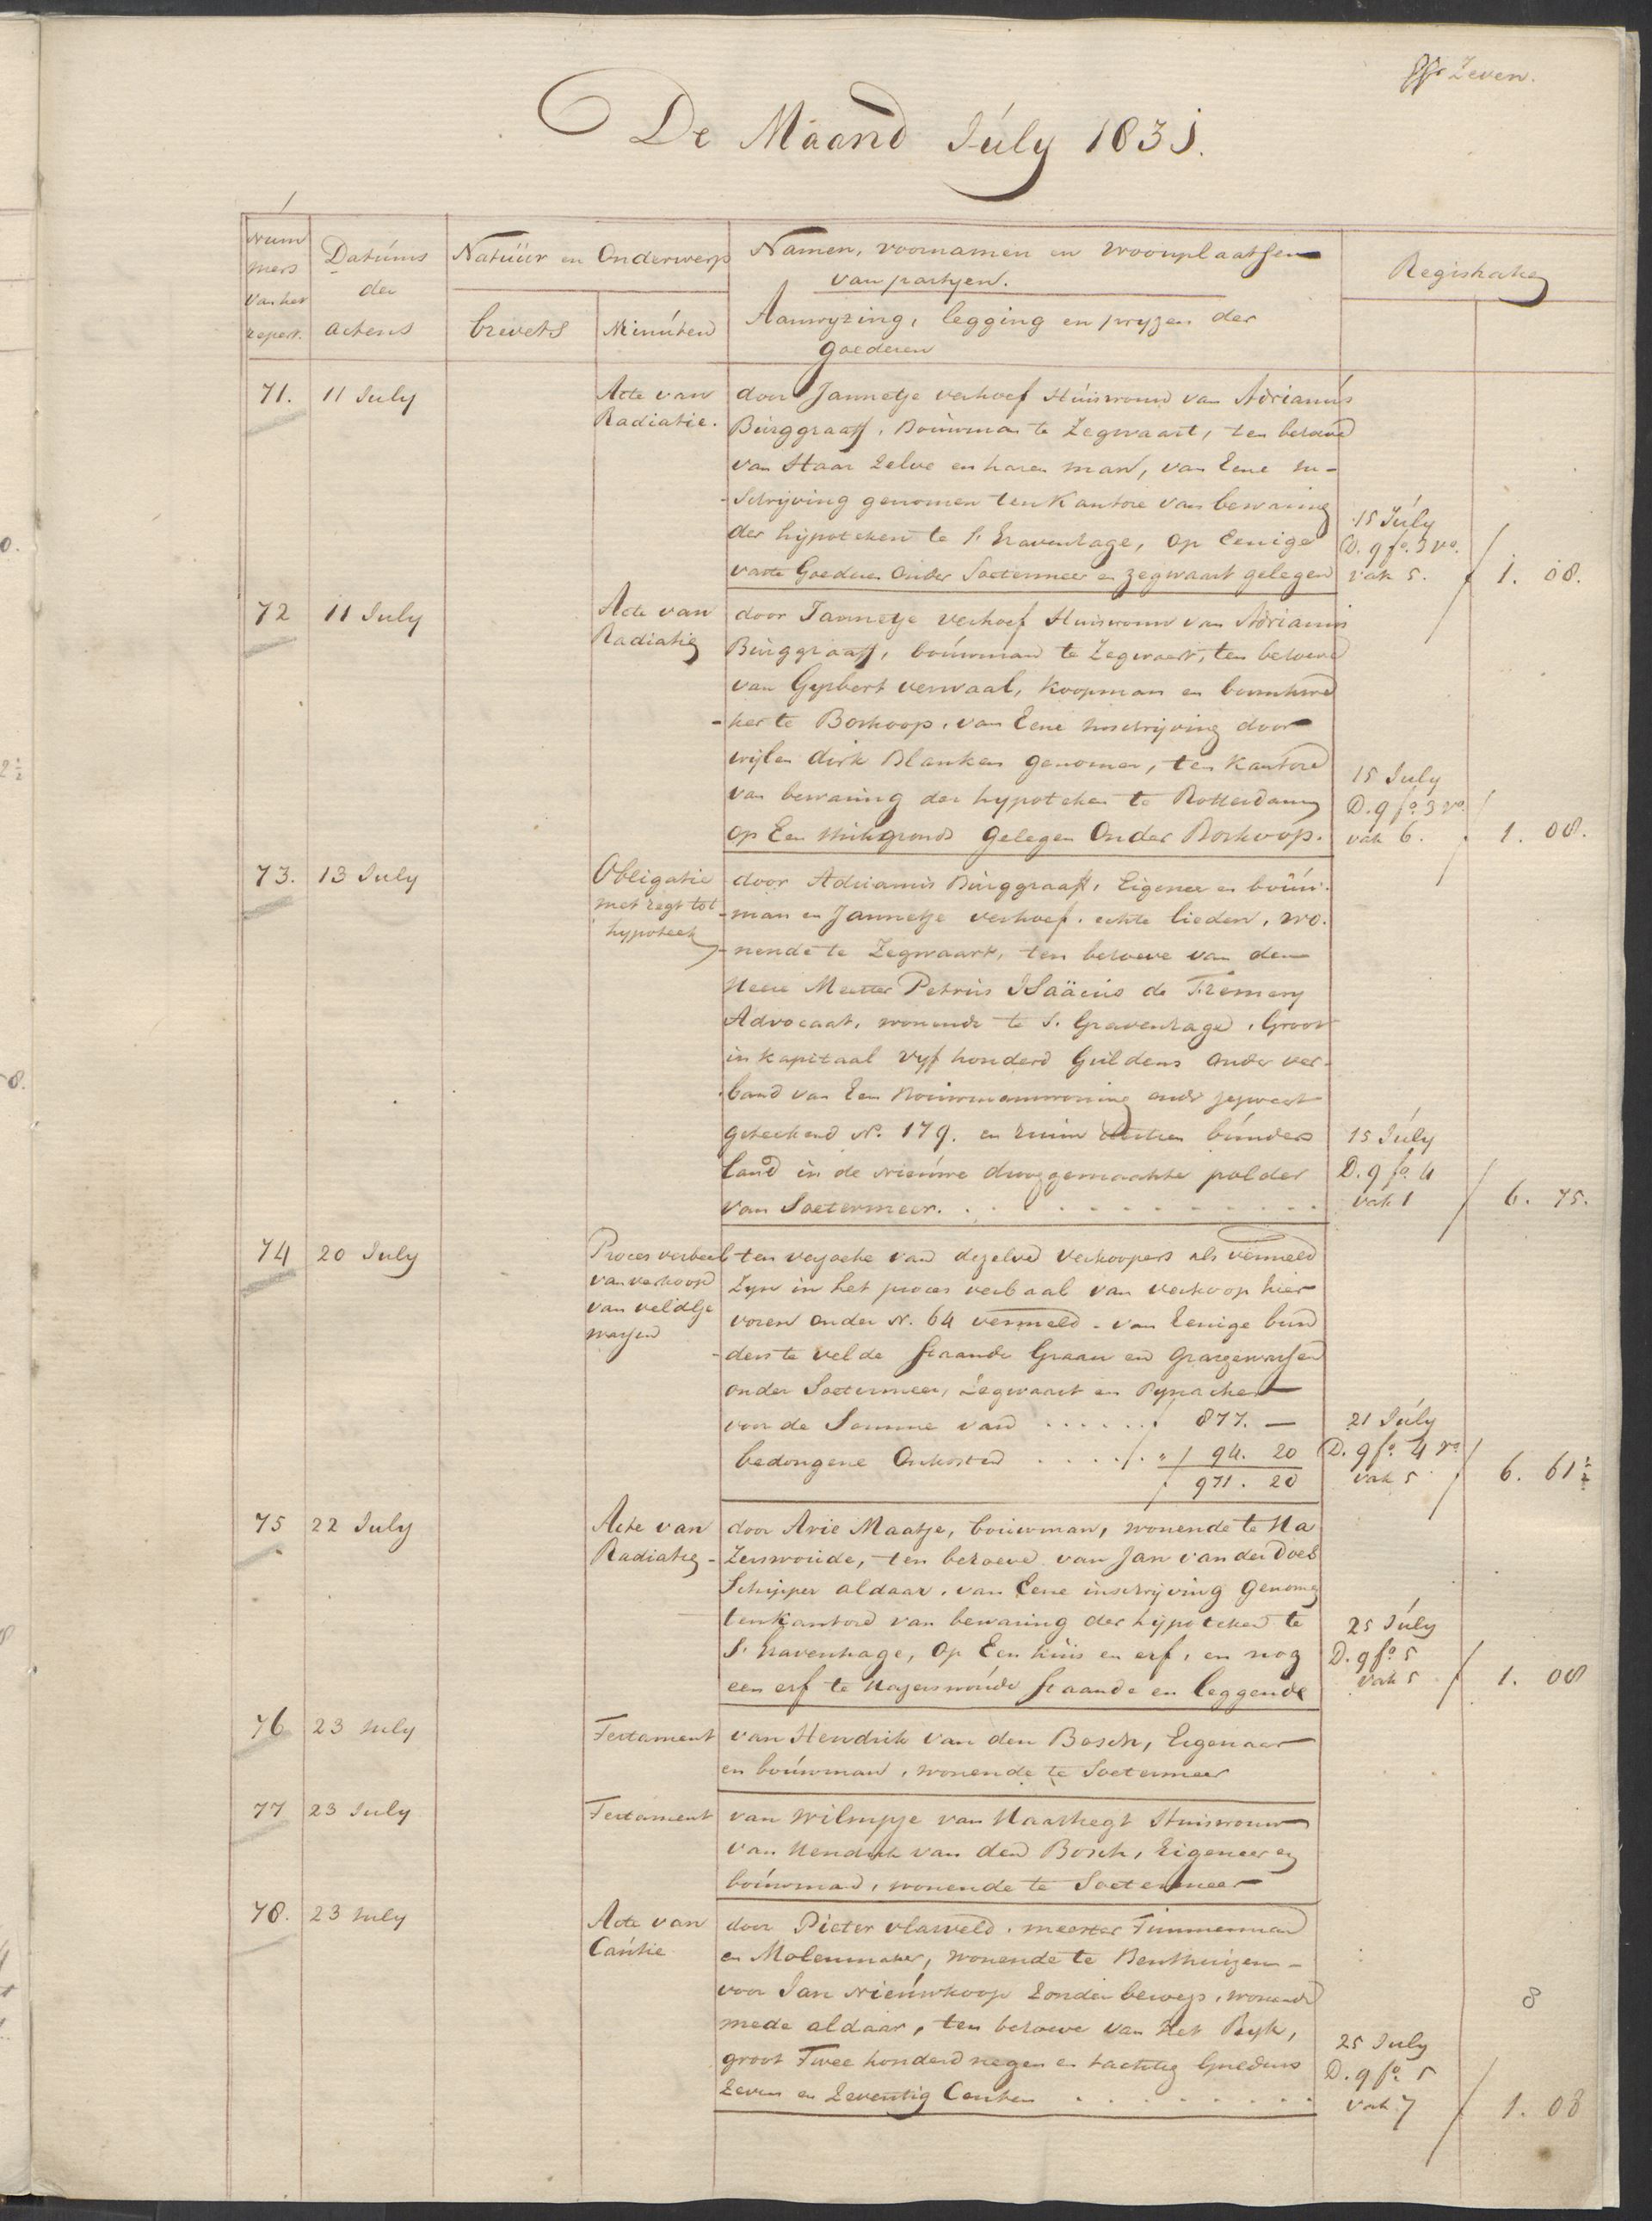 Zeven.
De Maand July 1831.
Num
mers
van het
repert.
Datums
der
actens
Natuur en Onderwerp
brevets
Minuten
Namen, voornamen en woonplaatsen
van partyen.
Aanwyzing, legging en pryzen der
goederen
Registratie
71. 11 July
Acte van
Radiatie.
door Jannetje verhoef Huisvrouw van Adrianus
Burggraaff, Bouwman te Zegwaart, ten behoeve
van Haar zelve en haren man, van Eene in-
-schrijving genomen ten Kantore van bewaring
der hijpotheken te S' Gravenhage, op Eenige
vaste Goederen onder Soetermeer en Zegwaart gelegen
15 July
D. 9 fo. 3 vo.
vak 5.
1. 08.
72 11 July
Acte van
Radiatie
door Jannetje verhoef Huisvrouw van Adrianus
Burggraaff, bouwman te Zegwaart, ten behoeve
van Gysbert verwaal, Koopman en boomkwe
-ker te Boskoop, van Eene inschrijving door
wijlen dirk Blanken genomen, ten Kantore
van bewaring der hypotheken te Rotterdam
op Een stuk grond gelegen Onder Boskoop.
15 July
D. 9 fo. 3 vo.
vak 6.
1. 08.
73. 13 July
Obligatie
met regt tot
hypotheek
door Adrianus Burggraaff, Eigenaer en bouw-
-man en Jannetje verhoef, echte lieden, wo-
-nende te Zegwaart, ten behoeve van den
Heere Meester Petrus Isaäcus de Fremery
Advocaat, wonende te S. Gravenhage, Groot
in kapitaal vyf honderd Guldens onder ver-
-band van Een Bouwmanswoning onder zegwaart
geteekend N. 179. en ruim bunders
land in de Nieuwe drooggemaakte polder
van Soetermeer.
15 July
D. 9 fo. 4
vak 1
6. 75.
74 20 July
Proces verbael
van verkoop
van veldge
wassen
ten verzoeke van dezelve verkoopers als vermeld
Zyn in het proces verbaal van verkoop hier
voren onder N. 64 vermeld. van Eenige bun
-ders te velde staande Graan en Graszgewassen
onder Soetermeer, Zegwaart en Pynacker
voor de Somme van ...... f 877. —
bedongene Onkosten ...... " 94. 20
f 971. 20
21 July
D. 9 fo. 4 vo
vak 5
6. 61½
75 22 July
Acte van
Radiatie
door Arie Maatje, bouwman, wonende te Ha
-zerswoude, ten behoeve van Jan van der Does
Schipper aldaar, van Eene inschrijving Genomen
ten Kantore van bewaring der hijpotheken te
S' Gravenhage, Op Een huis en erf, en nog
een erf te Hazerswoude staande en leggende
25 July
D. 9 fo. 5
vak 5
1. 08
76 23 July
Testament
van Hendrik van den Bosch, Eigenaer
en bouwman, wonende te Soetermeer
77 23 July
Testament
van Wilmpje van Haashegt Huisvrouw
van Hendrik van den Bosch, Eigeneer en
bouwman, wonende te Soetermeer
78. 23 July
Acte van
Cautie
door Pieter vlasveld, meester Timmerman
en Molenmaker, wonende te Benthuizen
voor Jan Nieuwkoop zonder beroep, wonende
mede aldaar, ten behoeve van Het Ryk,
groot Twee honderd negen en tachtig Guldens
Zeven en Zeventig Centen
25 July
D. 9 fo. 5
vak 7
8
1. 08